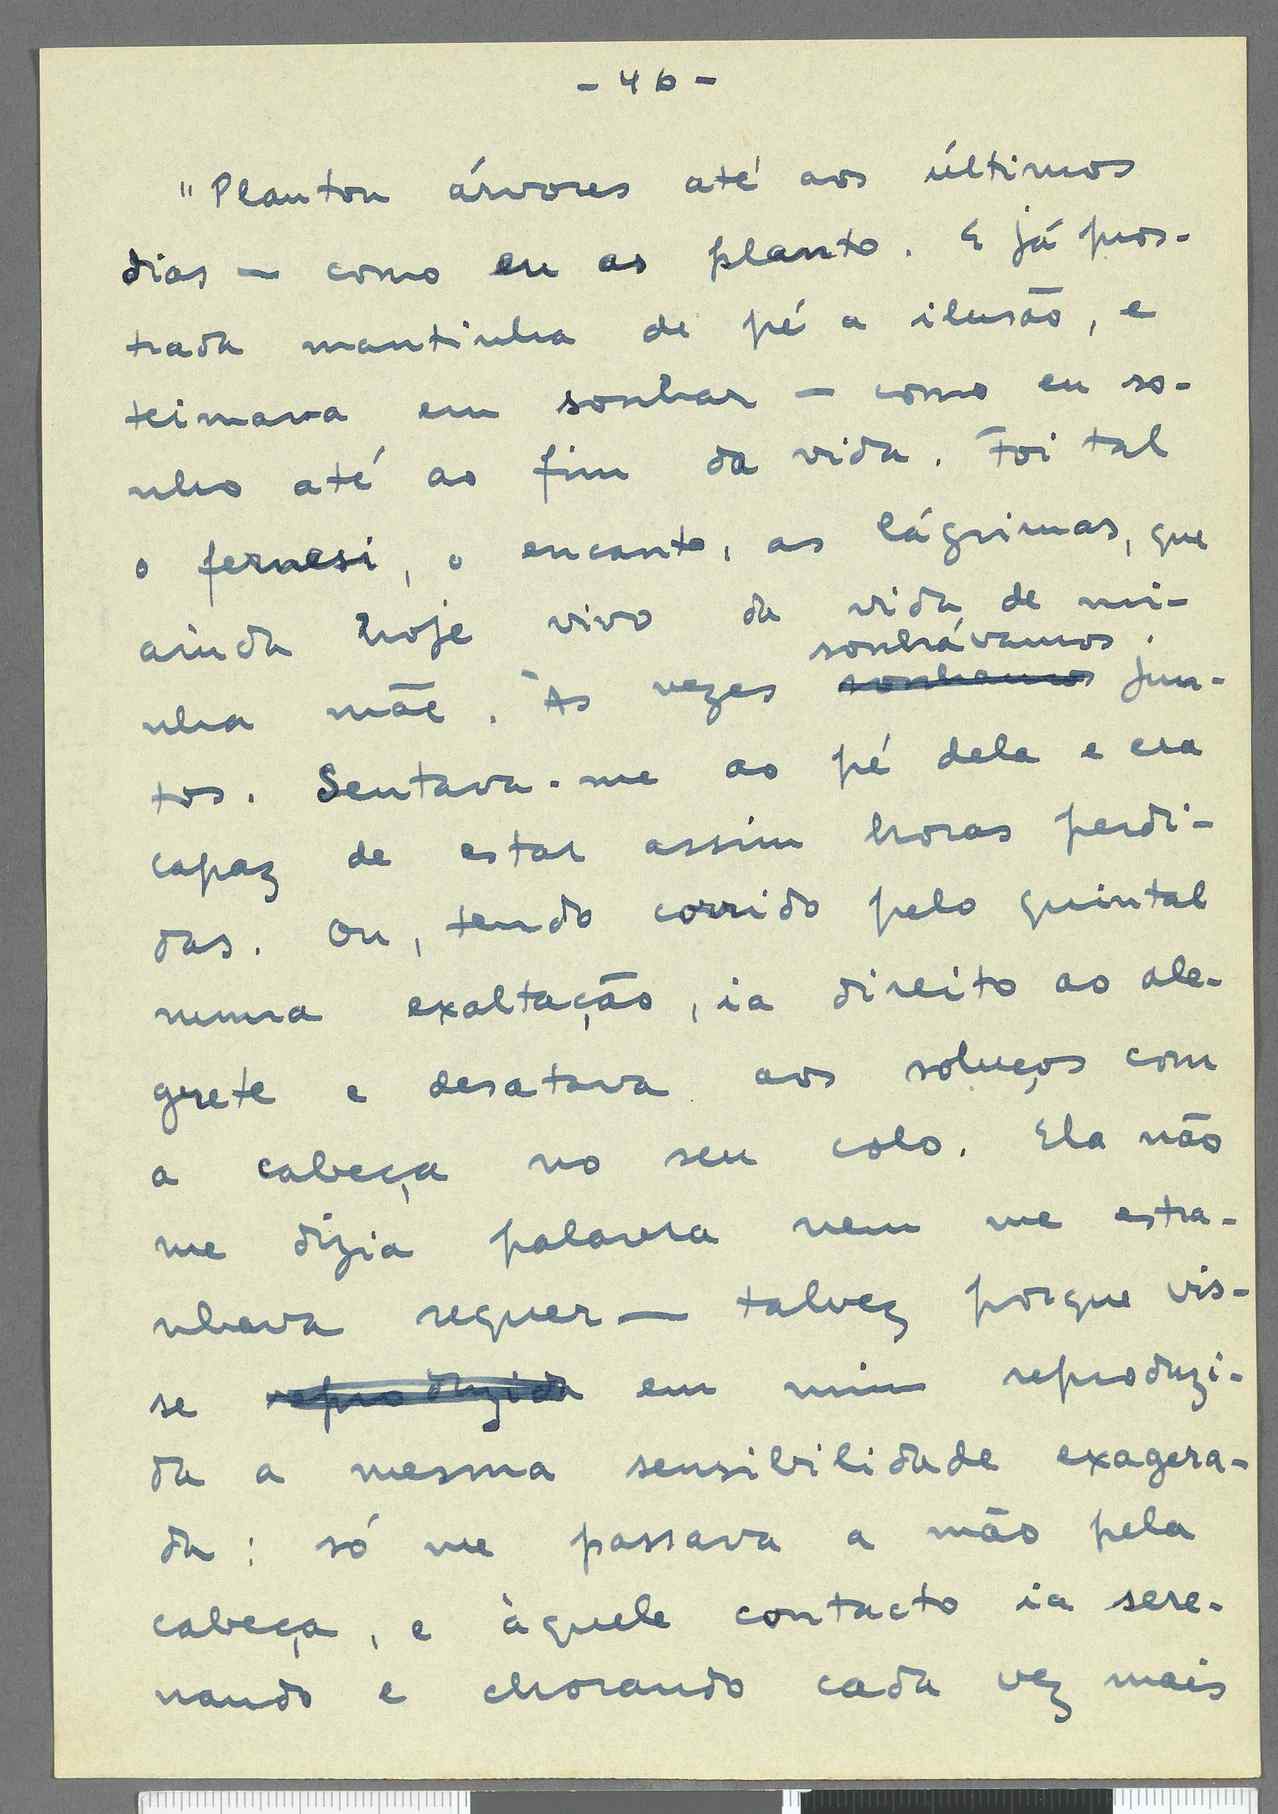 - 46 -
"Plantou árvores até aos últimos
dias — como eu as planto. E já pros-
trada mantinha de pé a ilusão, e
teimava em sonhar — como eu so-
nho até ao fim da vida. Foi tal
o fernesi, o encanto, as lágrimas, que
ainda hoje vivo da vida de mi-
nha mãe. Às vezes sonhávamos jun-
sonhamos
tos. Sentava-me ao pé dela e era
capaz de estar assim horas perdi-
das. Ou, tendo corrido pelo quintal
numa exaltação, ia direito ao ale-
grete e desatava aos soluços com
a cabeça no seu colo. Ela não
me dizia palavra nem me estra-
nhava sequer — talvez porque vis-
se reproduzida em mim reproduzi-
da a mesma sensibilidade exagera-
da: só me passava a mão pela
cabeça, e àquele contacto ia sere-
nando e chorando cada vez mais